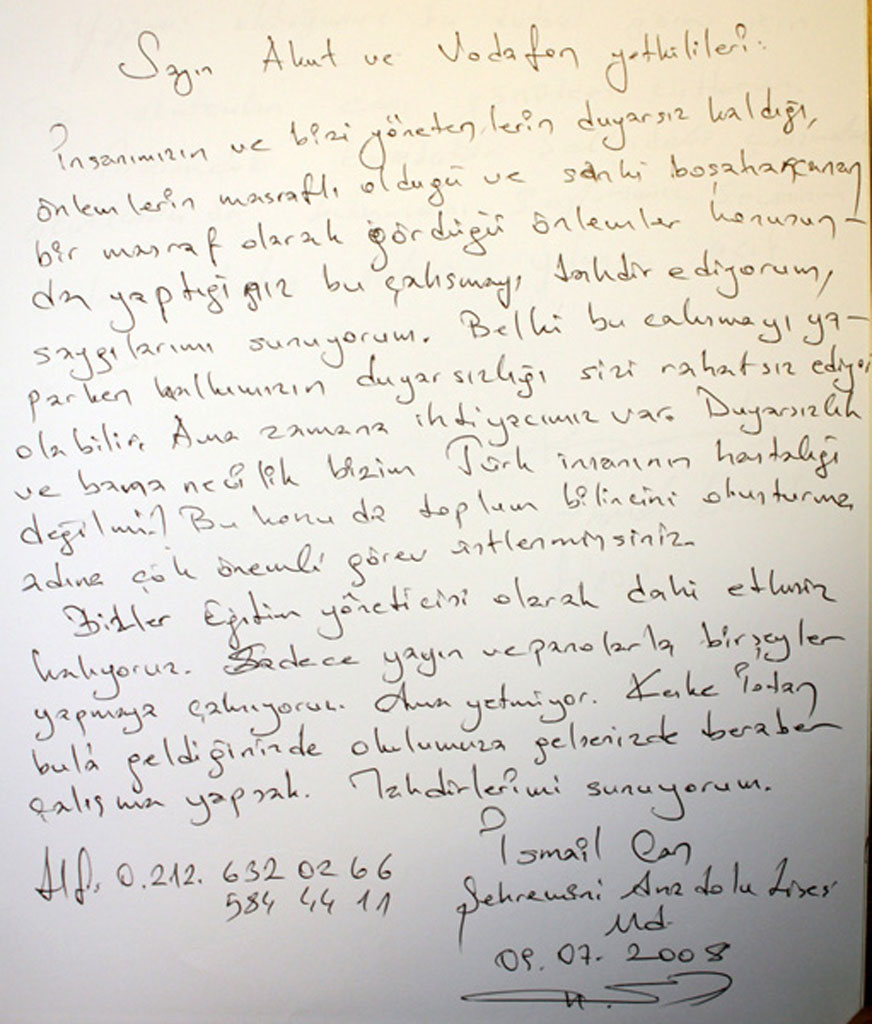 Sayın Akut ve Vodafon yetkilileri:
İnsanımızın ve bizi yönetenlerin duyarsız kaldığı,
önlemlerin masraflı olduğu ve sanki boşaharçanan
bir masraf olarak gördüğü önlemler konusun-
da yaptığığız bu çalışmayı takdir ediyorum,
saygılarımı sunuyorum. Belki bu çalışmayı ya-
parken halkımızın duyarsızlığı sizi rahatsız ediyor
olabilir. Ama zamana ihtiyacımız var. Duyarsızlık
ve bana necilik bizim Türk insanının hastalığı
değilmi? Bu konu da toplum bilincini oluşturma
adına çok önemli görev üstlenmişsiniz.
Bizler Eğitim yöneticisi olarak dahi etkisiz
kalıyoruz. Sadece yayın ve panolarla birşeyler
yapmaya çalışıyoruz. Ama yetmiyor. Keşke İstan
bula geldiğinizde okulumuza gelsenizde beraber
çalışma yapsak. Takdirlerimi sunuyorum.
İsmail Can
Tlf. 0.212. 632 02 66
Şehremini Anadolu Lisesi
584 44 11
Md.
09.07.2008